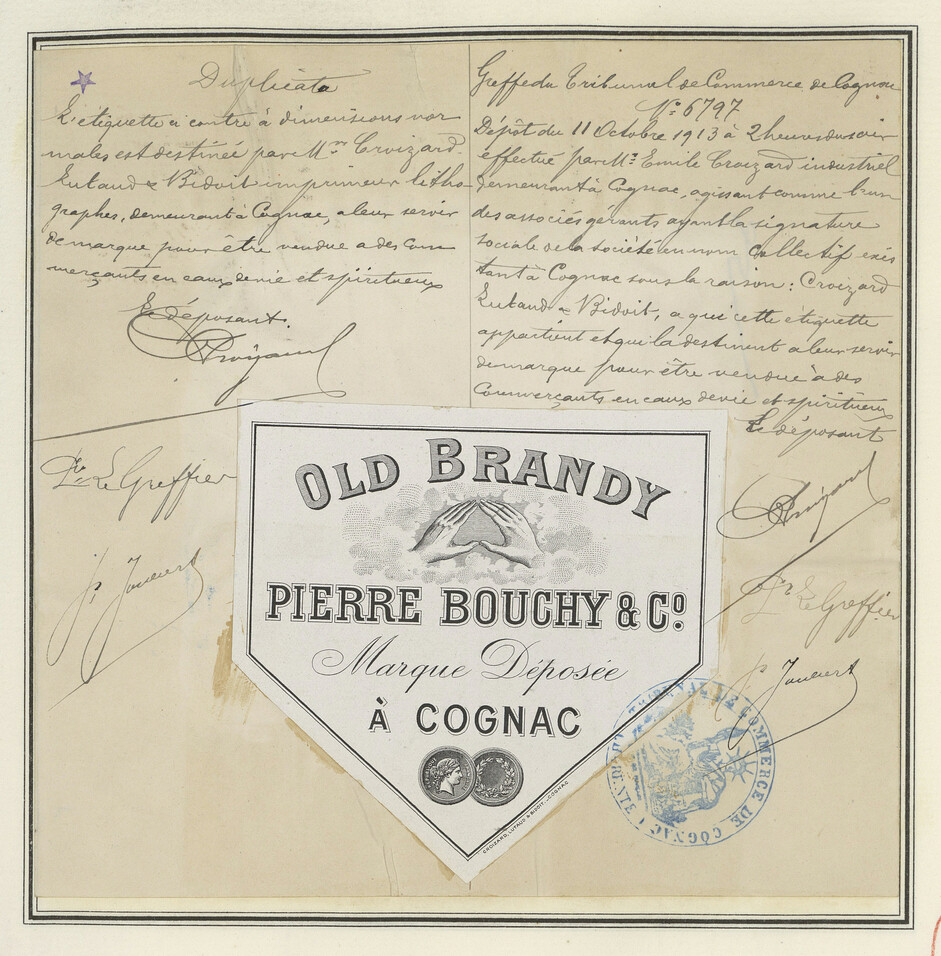 Duplicata
L'étiquette ci contre à dimensions nor
males est destinée par Mrs Croizard
Lutaud & Bidoit imprimeurs litho-
graphes, demeurant à Cognac, a leur servir
de marque pour être vendue a des Com
merçants en eaux de vie et spiritueux
Le déposant.
Croizard
Pr Le Greffier
Greffe du Tribunal de Commerce de Cognac
No 6797
Dépôt du 11 Octobre 1913 à 2 heures du soir
effectué par Mr Emile Croizard industriel
demeurant à Cognac, agissant comme l'un
des associés gérants ayant la signature
sociale de la société en nom collectif exis
tant à Cognac sous la raison : Croizard
Lutaud & Bidoit, a qui cette étiquette
appartient et qui la destinent a leur servir
de marque pour être vendue à des
Commerçants en eaux de vie et spiritueux
Le déposant
Croizard
Pr Le Greffier
OLD BRANDY
PIERRE BOUCHY & Co.
Marque Déposée
À COGNAC
CROIZARD, LUTAUD & BIDOIT, _COGNAC
TRIBUNAL DE COMMERCE DE COGNAC (CHARENTE)